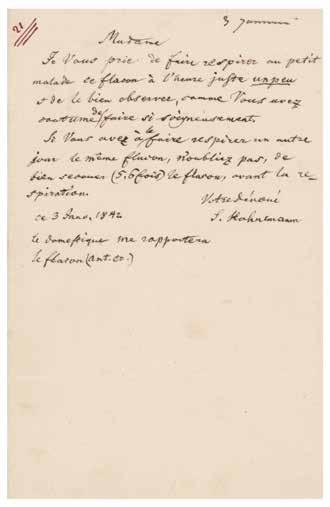 21
3 Janvier
Madame
Je Vous prie de faire respirer au petit
malade ce flacon à l'heure juste un peu
& de le bien observer, comme Vous avez
coutume de faire si soigneusement.
Si Vous avez à le faire respirer un autre
jour le même flacon, n'oubliez pas, de
bien secouer (5, 6 fois) le flacon, avant la re-
spiration.
Votre dévoué
S. Hahnemann
ce 3 Janv. 1842
le domestique me rapportera
le flacon (ant. cr.)